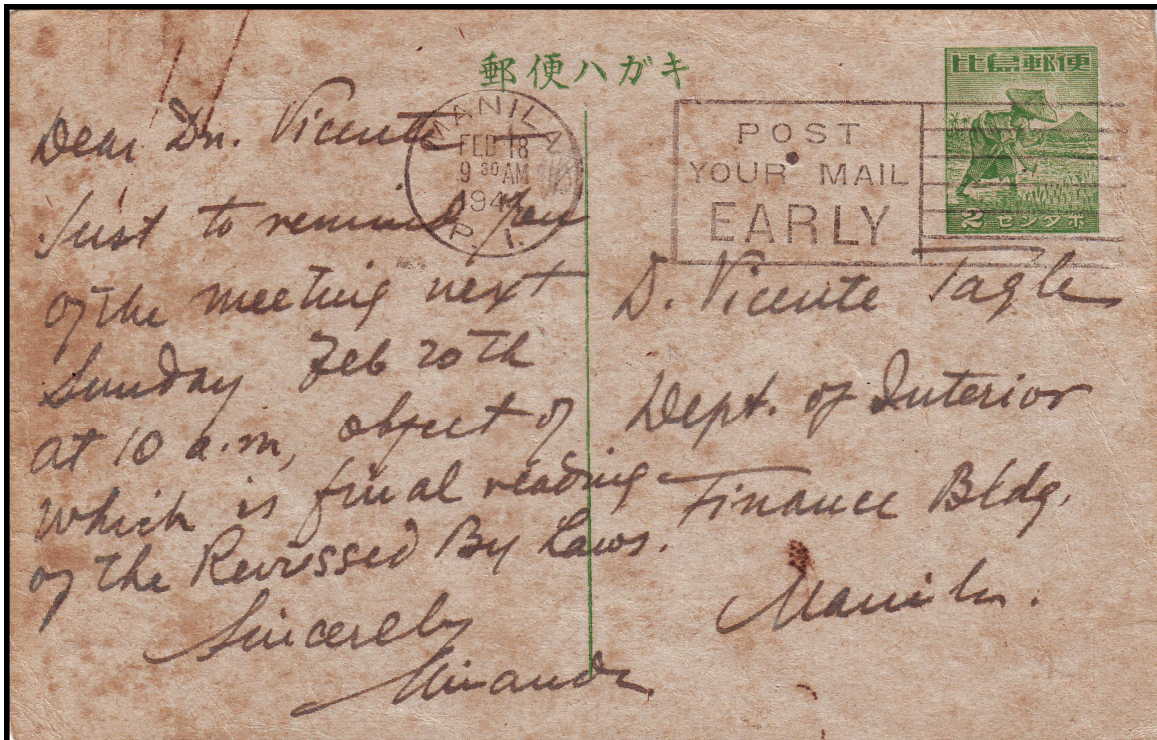 郵便ハガキ
比島郵便
2 センタボ
MANILA
FEB 18
9 30 AM
194
P. I.
POST
YOUR MAIL
EARLY
Dear Dn. Vicente
Just to remind you
of the meeting next
Sunday Feb 20th
at 10 a.m, object of
which is final reading
of the Revissed By Laws.
Sincerely
Miranda
D. Vicente Tagle
Dept. of Interior
Finance Bldg.
Manila.